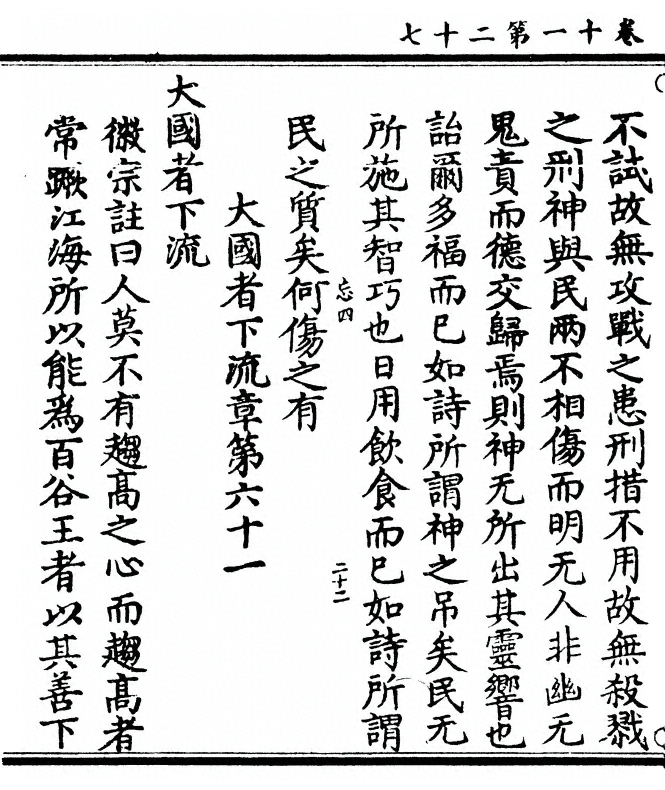 卷十一第二十七
不試故無攻戰之患刑措不用故無殺戮
之刑神與民兩不相傷而明无人非幽无
鬼責而德交歸焉則神无所出其靈響也
詒爾多福而已如詩所謂神之吊矣民无
所施其智巧也日用飲食而已如詩所謂
忘四
二十二
民之質矣何傷之有
大國者下流章第六十一
大國者下流
徽宗註曰人莫不有趨高之心而趨高者
常蹶江海所以能爲百谷王者以其善下